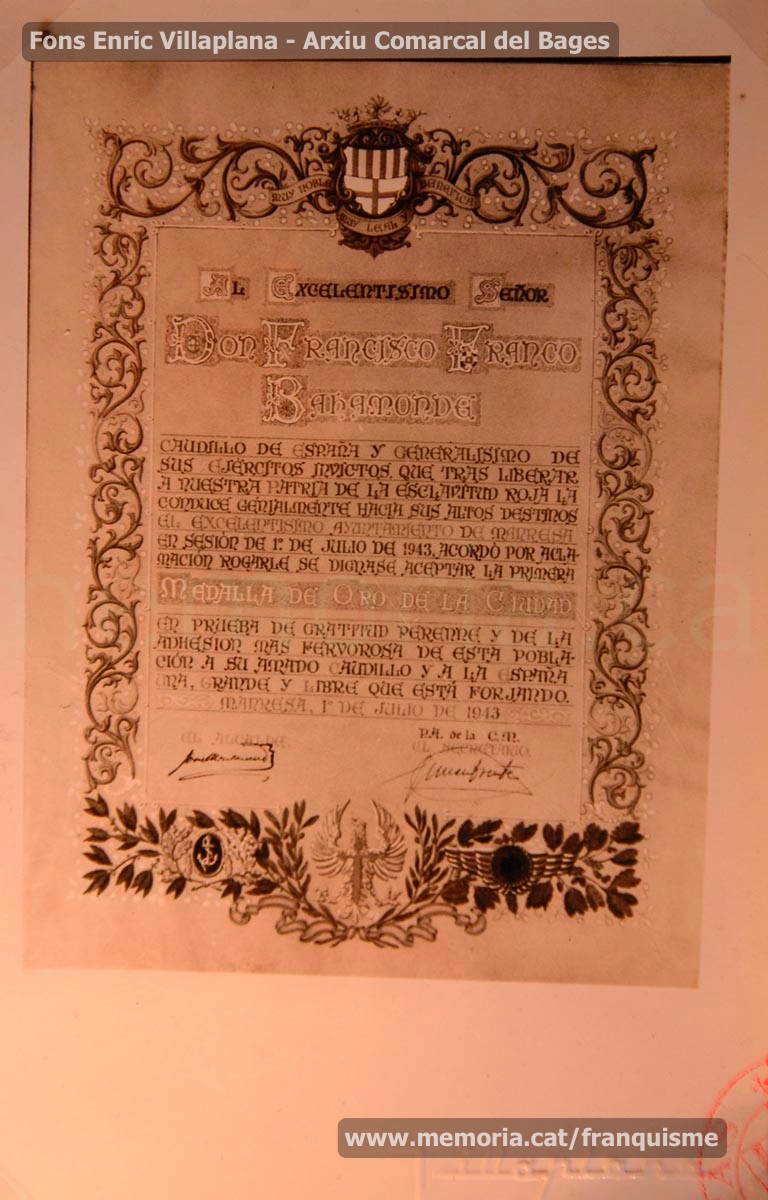 Fons Enric Villaplana - Arxiu Comarcal del Bages
MUY NOBLE
MUY LEAL Y
BENEFICA
AL EXCELENTISIMO SEÑOR
DON FRANCISCO FRANCO
BAHAMONDE
CAUDILLO DE ESPAÑA Y GENERALISIMO DE
SUS EJÉRCITOS INVICTOS. QUE TRAS LIBERAR
A NUESTRA PATRIA DE LA ESCLAVITUD ROJA LA
CONDUCE GENIALMENTE HACIA SUS ALTOS DESTINOS
EL EXCELENTISIMO AYUNTAMIENTO DE MANRESA
EN SESIÓN DE 1º DE JULIO DE 1943, ACORDÓ POR ACLA-
MACIÓN ROGARLE SE DIGNASE ACEPTAR LA PRIMERA
MEDALLA DE ORO DE LA CIUDAD
EN PRUEBA DE GRATITUD PERENNE Y DE LA
ADHESION MAS FERVOROSA DE ESTA POBLA-
CIÓN A SU AMADO CAUDILLO Y A LA ESPAÑA
UNA, GRANDE Y LIBRE QUE ESTÁ FORJANDO.
MANRESA, 1º DE JULIO DE 1943
EL ALCALDE,
P.A. de la C.M.
EL SECRETARIO,
www.memoria.cat/franquisme